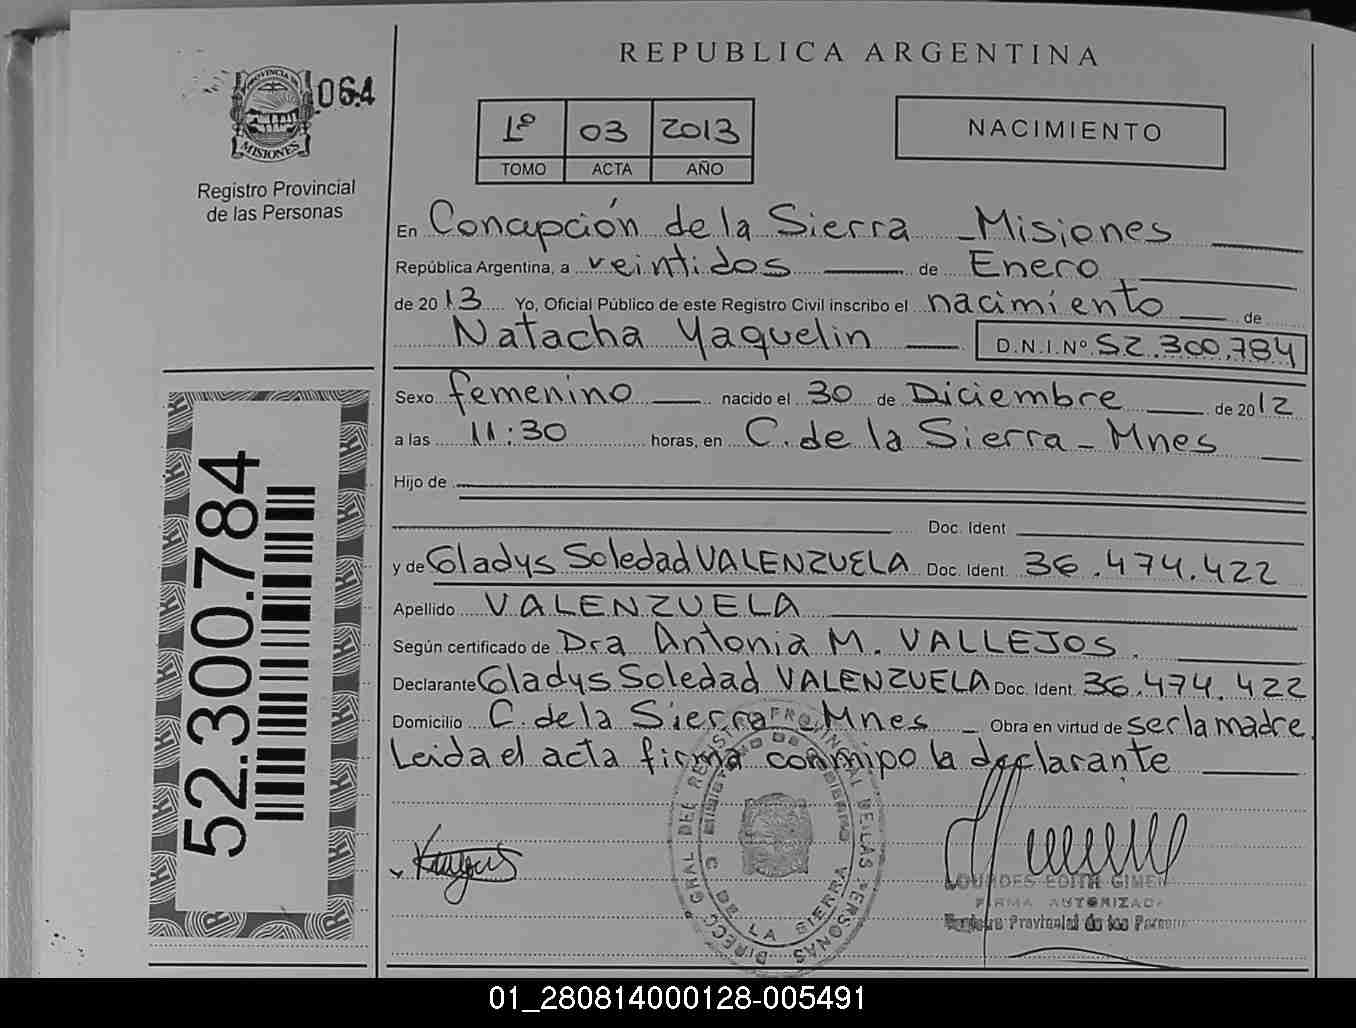 REPUBLICA ARGENTINA
PROVINCIA DE
MISIONES
064
Registro Provincial
de las Personas
1º 03 2013
TOMO ACTA AÑO
NACIMIENTO
En Concepción de la Sierra - Misiones
República Argentina, a veintidos de Enero
de 2013 Yo, Oficial Público de este Registro Civil inscribo el nacimiento de
Natacha Yaquelin D.N.I.Nº 52.300.784
Sexo femenino nacido el 30 de Diciembre de 2012
a las 11:30 horas, en C. de la Sierra - Mnes
Hijo de
Doc. Ident
y de Gladys Soledad VALENZUELA Doc. Ident. 36.474.422
Apellido VALENZUELA
Según certificado de Dra Antonia M. VALLEJOS.
Declarante Gladys Soledad VALENZUELA Doc. Ident. 36.474.422
Domicilio C. de la Sierra - Mnes Obra en virtud de ser la madre.
Leida el acta firma conmigo la declarante
52.300.784
DIRECC. GRAL DEL REGISTRO PROVINCIAL DE LAS PERSONAS
MINISTERIO DE GOBIERNO
C DE LA SIERRA
LOURDES EDITH GIMEN
FIRMA AUTORIZADA
Registro Provincial de las Person
01_280814000128-005491